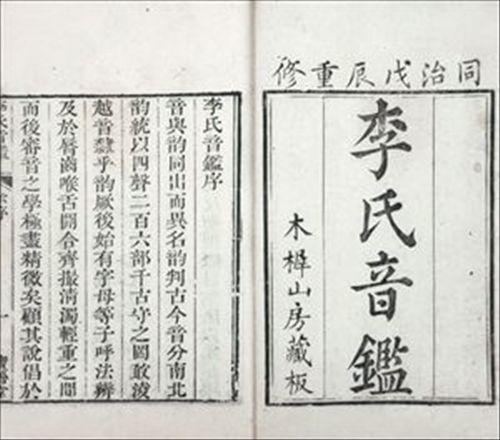 同治戊辰重修
李氏音鑑
木樨山房藏板
李氏音鑑序
音與韵同出而異名韵判古今音分南北
韵統以四聲二百六部千古守之罔敢淩
越音隸乎韵厥後始有字母等子呼法辨
及於唇齒喉舌開合齊撮淸濁輕重之間
而後審音之學極盡精微矣顧其說倡於